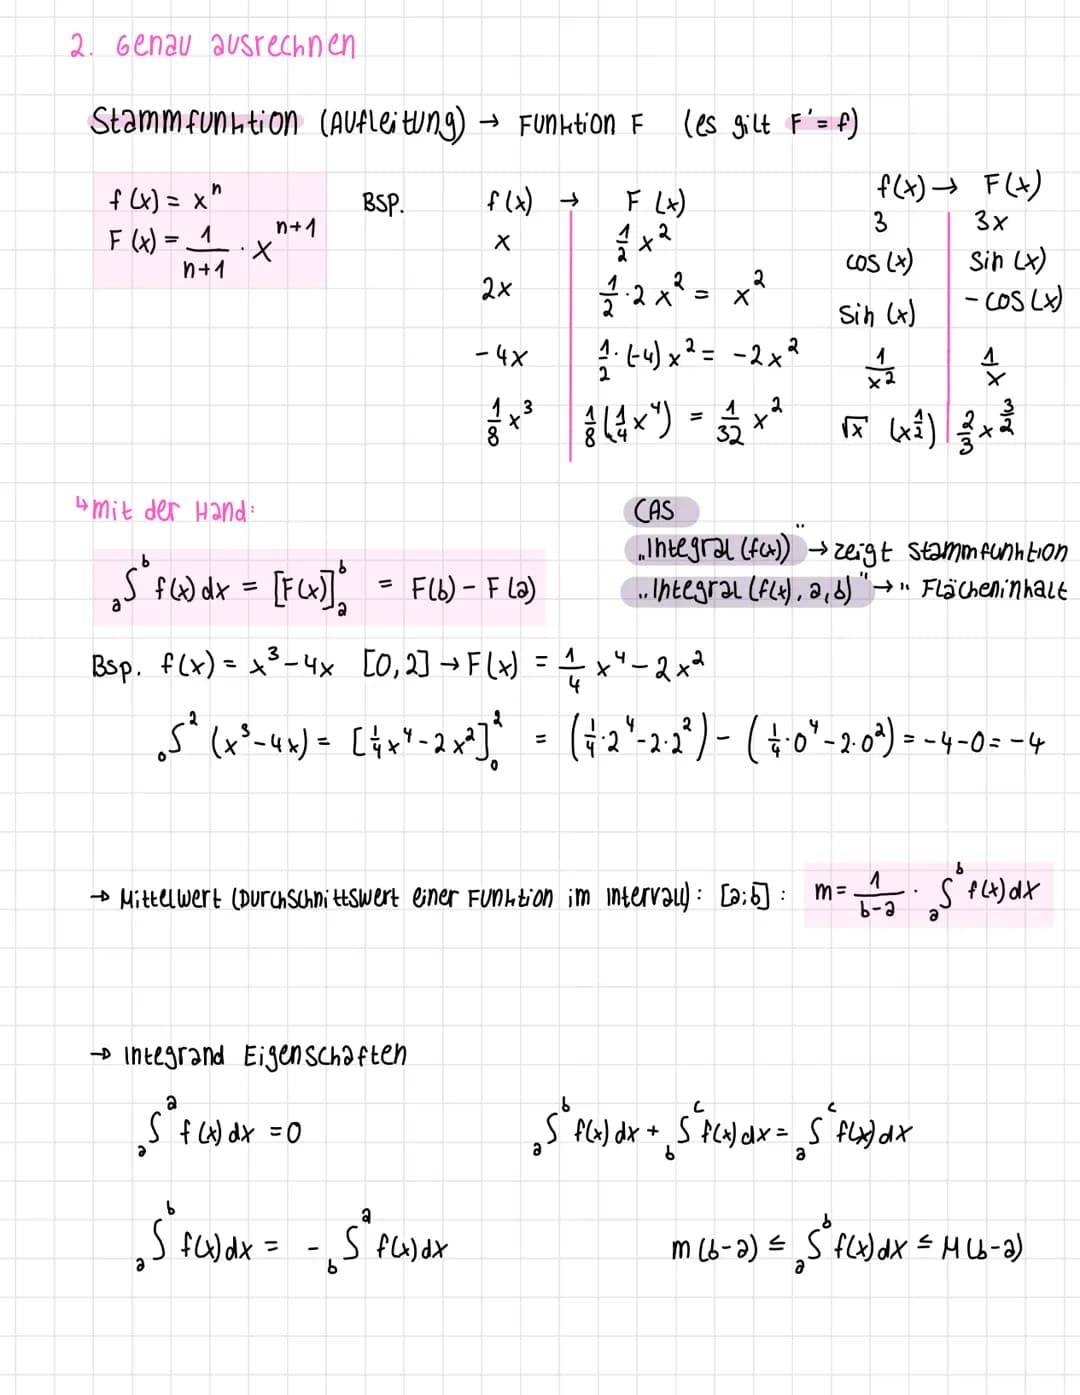 2. Genau ausrechnen
Stammfunktion (Aufleitung) → Funktion F (es gilt F' = f)
f(x) = xⁿ
F(x) = 1/(n+1) · xⁿ⁺¹
BSP. f(x) → F(x)
x | 1/2 x²
2x | 1/2 · 2x² = x²
-4x | 1/2 · (-4)x² = -2x²
1/8 x³ | 1/8 (1/4 x⁴) = 1/32 x²
f(x) → F(x)
3 | 3x
cos(x) | sin(x)
sin(x) | -cos(x)
1/x² | 1/x
√x (x^(1/2)) | 2/3 x^(3/2)
↳ mit der Hand:
ₐ∫ᵇ f(x) dx = [F(x)]ₐᵇ = F(b) - F(a)
CAS
„Integral (f(x))" → zeigt Stammfunktion
„Integral (f(x), a, b)" → " Flächeninhalt
Bsp. f(x) = x³ - 4x [0,2] → F(x) = 1/4 x⁴ - 2x²
₀∫² (x³-4x) = [1/4 x⁴ - 2x²]₀² = (1/4 · 2⁴ - 2·2²) - (1/4 · 0⁴ - 2·0²) = -4-0 = -4
→ Mittelwert (Durchschnittswert einer Funktion im Intervall): [a;b] : m = 1/(b-a) · ₐ∫ᵇ f(x) dx
→ Integrand Eigenschaften
ₐ∫ᵃ f(x) dx = 0
ₐ∫ᵇ f(x) dx + b∫ᶜ f(x) dx = ₐ∫ᶜ f(x) dx
ₐ∫ᵇ f(x) dx = - b∫ᵃ f(x) dx
m(b-a) ≤ ₐ∫ᵇ f(x) dx ≤ M(b-a)